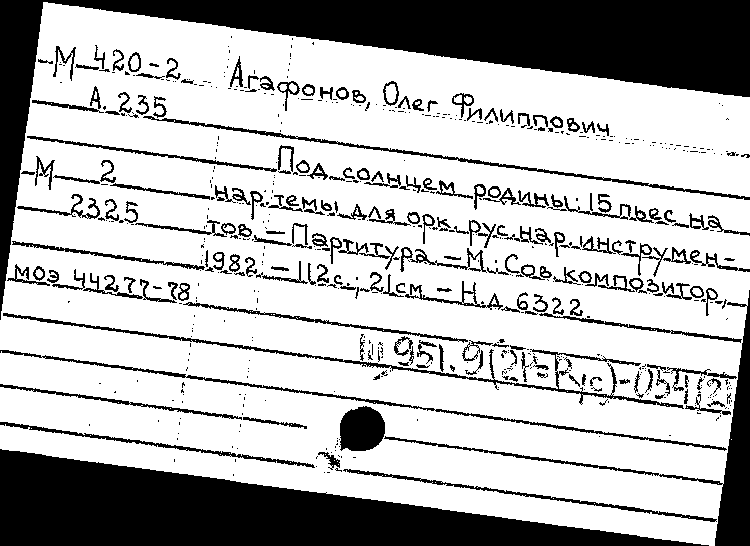 М 420-2 Агафонов, Олег Филиппович
А. 235
Под солнцем родины: 15 пьес на
М 2 нар. темы для орк. рус. нар. инструмен-
2325 тов. – Партитура. – М.: Сов. композитор,
1982. – 112 с.; 21 см. – Н.д. 6322.
моэ 44277-78
Щ 951.9(2Р=Рус)-054(2)